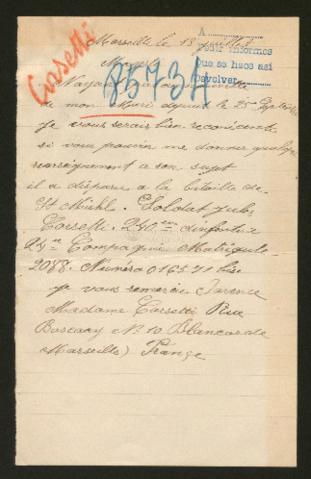 Marseille le 13
A
Pedir informes
Que se haos asi
Devolver
Corsetti
85734
de mon Mari depuis le 25 Septembre
je vous serais bien reconaisante
si vous pouvin me donner quelque
renseignement a son sujet
il a disparu a la bataille de
St Mihiel. Soldat Jules
Corsetti. 240 em d'infanterie
Compagnie Matricule
2088. Numéro 01651 bis
je vous remercie d'avence
Madame Corsetti Rue
Buscary No 10 Blancarde
Marseille) France